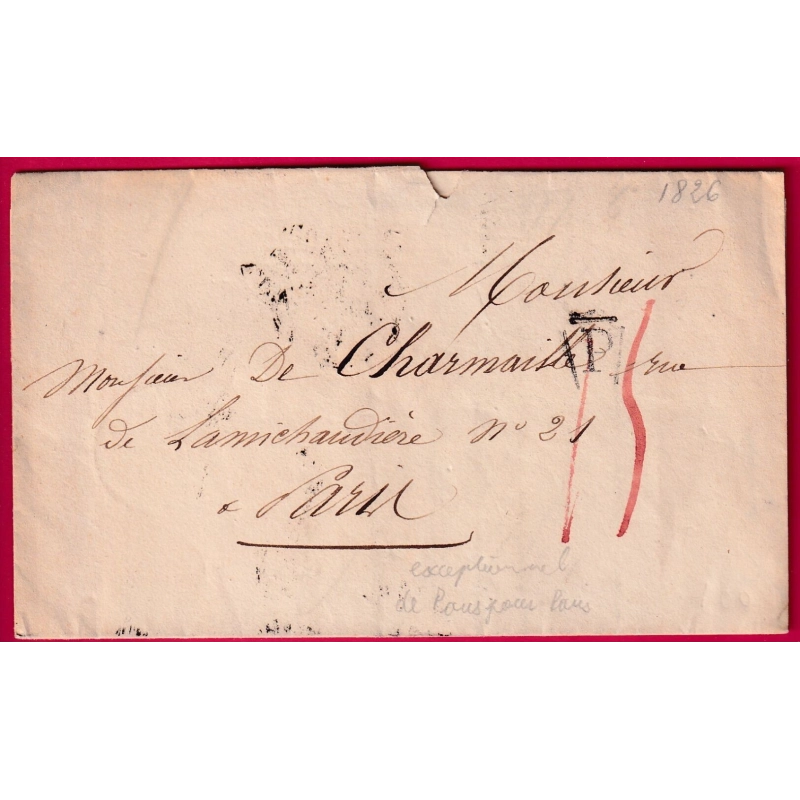 1826
Monsieur
Monsieur De Charmaille rue
P
de Lamichaudière n° 21
a Paris
15
exceptionnel
de Paris pour Paris